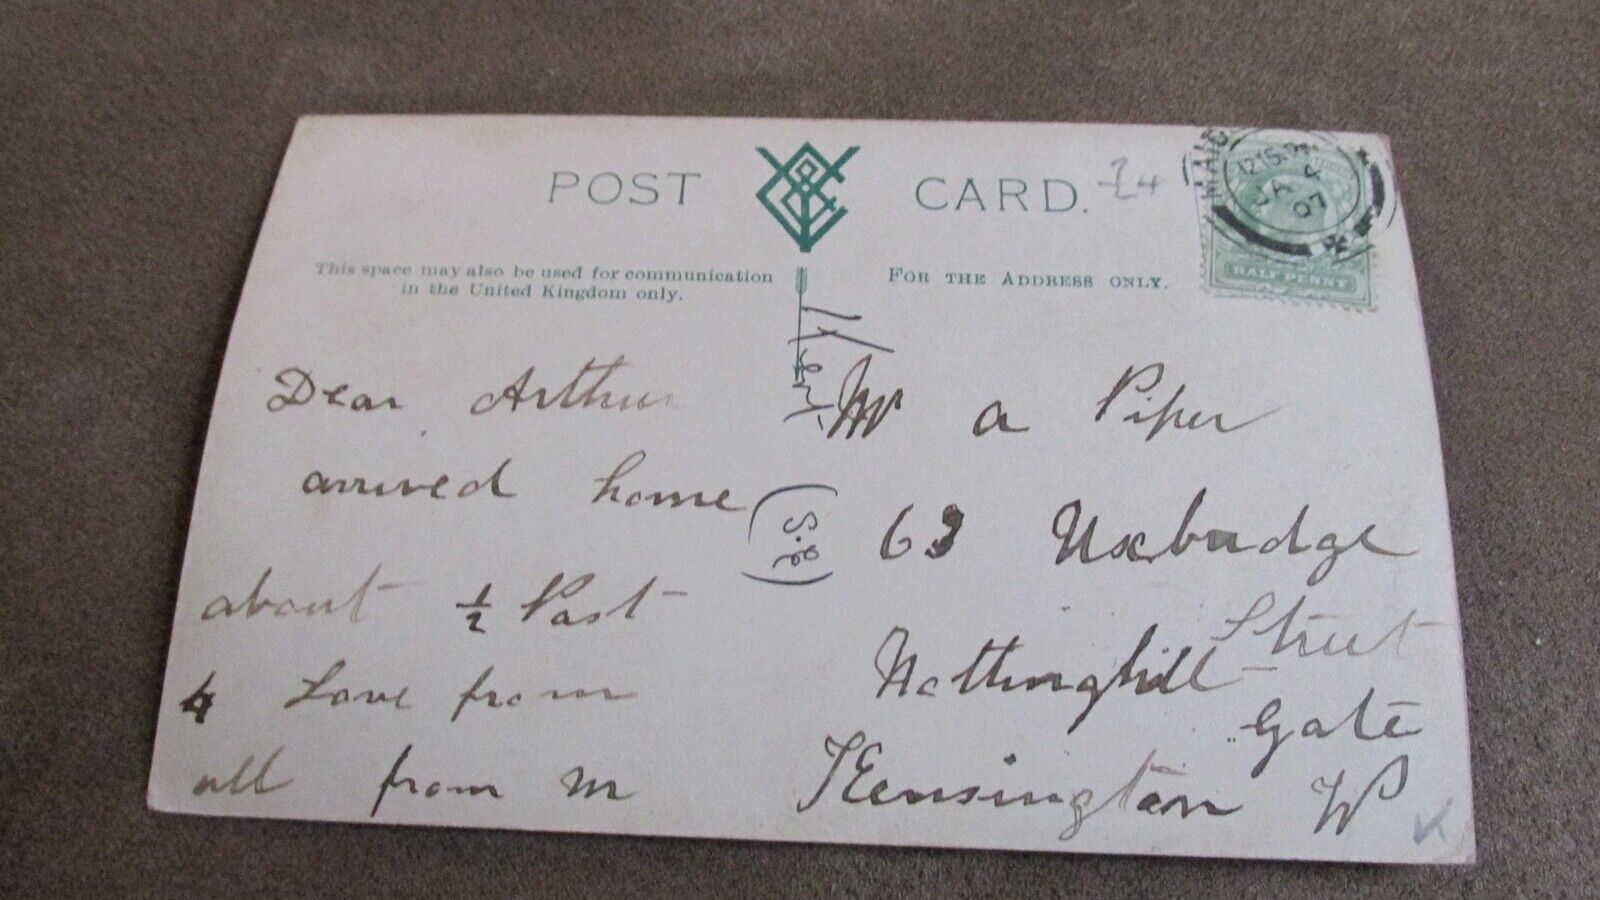 POST CARD.
This space may also be used for communication
in the United Kingdom only.
FOR THE ADDRESS ONLY.
12.15 PM
JA 4
07
HALF PENNY
Dear Arthur
arrived home
about ½ Past
4 Love from
all from M
Mr a Piper
63 Uxbridge
Street
Nottinghill
Gate
Kensington W